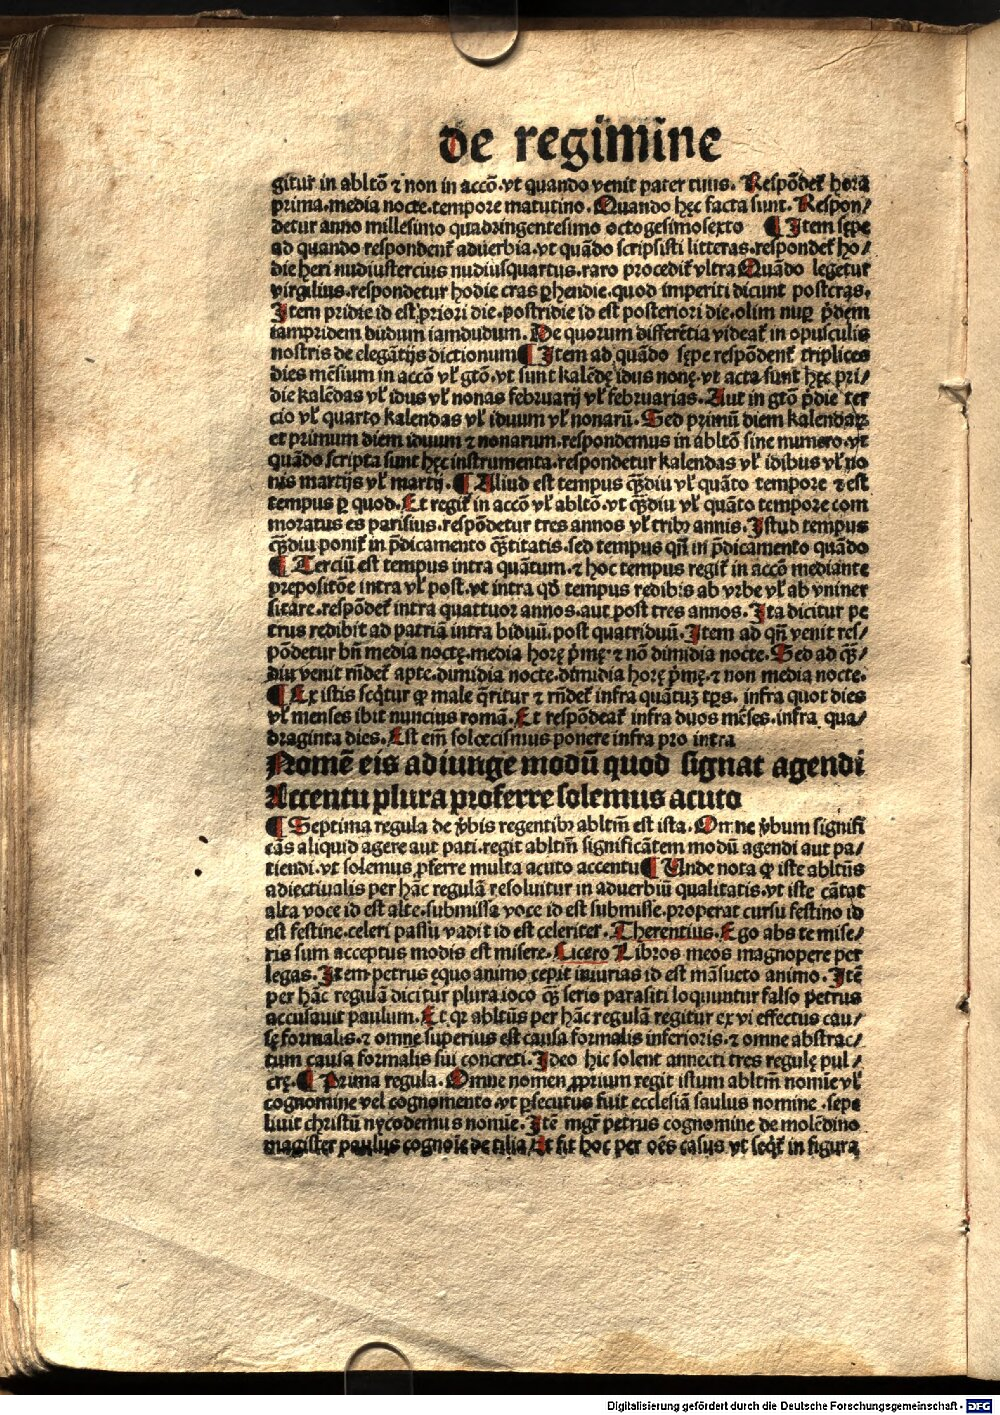 de regimine
gitur in abltō ⁊ non in accō.vt quando venit pater tuus. Respōdet᷑ hora
prima.media nocte.tempore matutino. Quando hęc facta sunt. Respon/
detur anno millesimo quadringentesimo octogesimosexto ¶ Item sępe
ad quando respondent᷑ aduerbia.vt quādo scripsisti litteras.respondet᷑ ho/
die heri nudiustercius nudiusquartus.raro procedit᷑ vltra Quādo legetur
virgilius.respondetur hodie cras ꝑhendie.quod imperiti dicunt postcras.
Item pridie id est priori die.postridie id est posteriori die.olim nuꝑ p̄dem
iampridem dudum iamdudum. De quorum differētia videat᷑ in opusculis
nostris de elegātijs dictionum ¶ Item ad quādo sępe respōdent᷑ triplices
dies mēsium in accō vl᷑ gtō.vt sunt kalēdę idus nonę.vt acta sunt hęc pri/
die kalēdas vl᷑ idus vl᷑ nonas februarij vl᷑ februarias. Aut in gtō p̄die ter
cio vl᷑ quarto kalendas vl᷑ iduum vl᷑ nonarū. Sed primū diem kalendaꝝ
et primum diem iduum ⁊ nonarum.respondemus in abltō sine numero.vt
quādo scripta sunt hęc instrumenta.respondetur kalendas vl᷑ idibus vl᷑ no
nis martijs vl᷑ martij. ¶ Aliud est tempus q̄ȝdiu vl᷑ quāto tempore ⁊ est
tempus ꝑ quod. Et regit᷑ in accō vl᷑ abltō.vt q̄ȝdiu vl᷑ quāto tempore com
moratus es parisius.respōdetur tres annos vl᷑ tribꝰ annis. Istud tempus
q̄ȝdiu ponit᷑ in p̄dicamento q̄ȝtitatis.sed tempus qn̄ in p̄dicamento quādo
¶ Terciū est tempus intra quātum.⁊ hoc tempus regit᷑ in accō mediante
prepositōe intra vl᷑ post.vt intra qd̄ tempus redibis ab vrbe vl᷑ ab vniuer
sitate.respōdet᷑ intra quattuor annos.aut post tres annos. Ita dicitur pe
trus redibit ad patriā intra biduū.post quatriduū. Item ad qn̄ venit res/
pōdetur bn̄ media noctę.media horę p̄mę.⁊ nō dimidia nocte. Sed ad q̄ȝ/
diu venit rn̄det᷑ apte.dimidia nocte.dimidia horę p̄mę.⁊ non media nocte.
¶ Ex istis seq̄tur ꝙ male q̄ritur ⁊ rn̄det᷑ infra quātuȝ tp̄s. infra quot dies
vl᷑ menses ibit nuncius romā. Et respōdeat᷑ infra duos mēses.infra qua/
draginta dies. Est em̄ solœcismus ponere infra pro intra
Nomē eis adiunge modū quod signat agendi
Accentu plura proferre solemus acuto
¶ Septima regula de v̄bis regentibꝰ abltm̄ est ista. Omne v̄bum signifi
cās aliquid agere aut pati.regit abltm̄ significātem modū agendi aut pa/
tiendi.vt solemus ꝓferre multa acuto accentu ¶ Unde nota ꝙ iste abltūs
adiectiualis per hāc regulā resoluitur in aduerbiū qualitatis.vt iste cātat
alta voce id est alte.submissa voce id est submisse.properat cursu festino id
est festine.celeri passu vadit id est celeriter. Therentius. Ego abs te mise/
ris sum acceptus modis est misere. Cicero Libros meos magnopere per
legas. Item petrus ęquo animo cepit iniurias id est māsucto animo. Itē
per hāc regulā dicitur plura ioco q̄ȝ serio parasiti loquuntur falso petrus
accusauit paulum. Et qꝛ abltūs per hāc regulā regitur ex vi effectus cau/
sę formalis.⁊ omne superius est causa formalis inferioris.⁊ omne abstrac/
tum causa formalis sui concreti. Ideo hic solent annecti tres regulę pul/
crę. ¶ Prima regula. Omne nomen ꝓprium regit istum abltm̄ nomīe vl᷑
cognomine vel cognomento.vt ꝑsecutus fuit ecclesiā saulus nomine.sepe
liuit christū nycodemus nomīe. Itē mgr̄ petrus cognomine de molēdino
magister paulus cognoīe de tilia. Et fit hoc per oēs casus vt seqt᷑ in figura
Digitalisierung gefördert durch die Deutsche Forschungsgemeinschaft - DFG